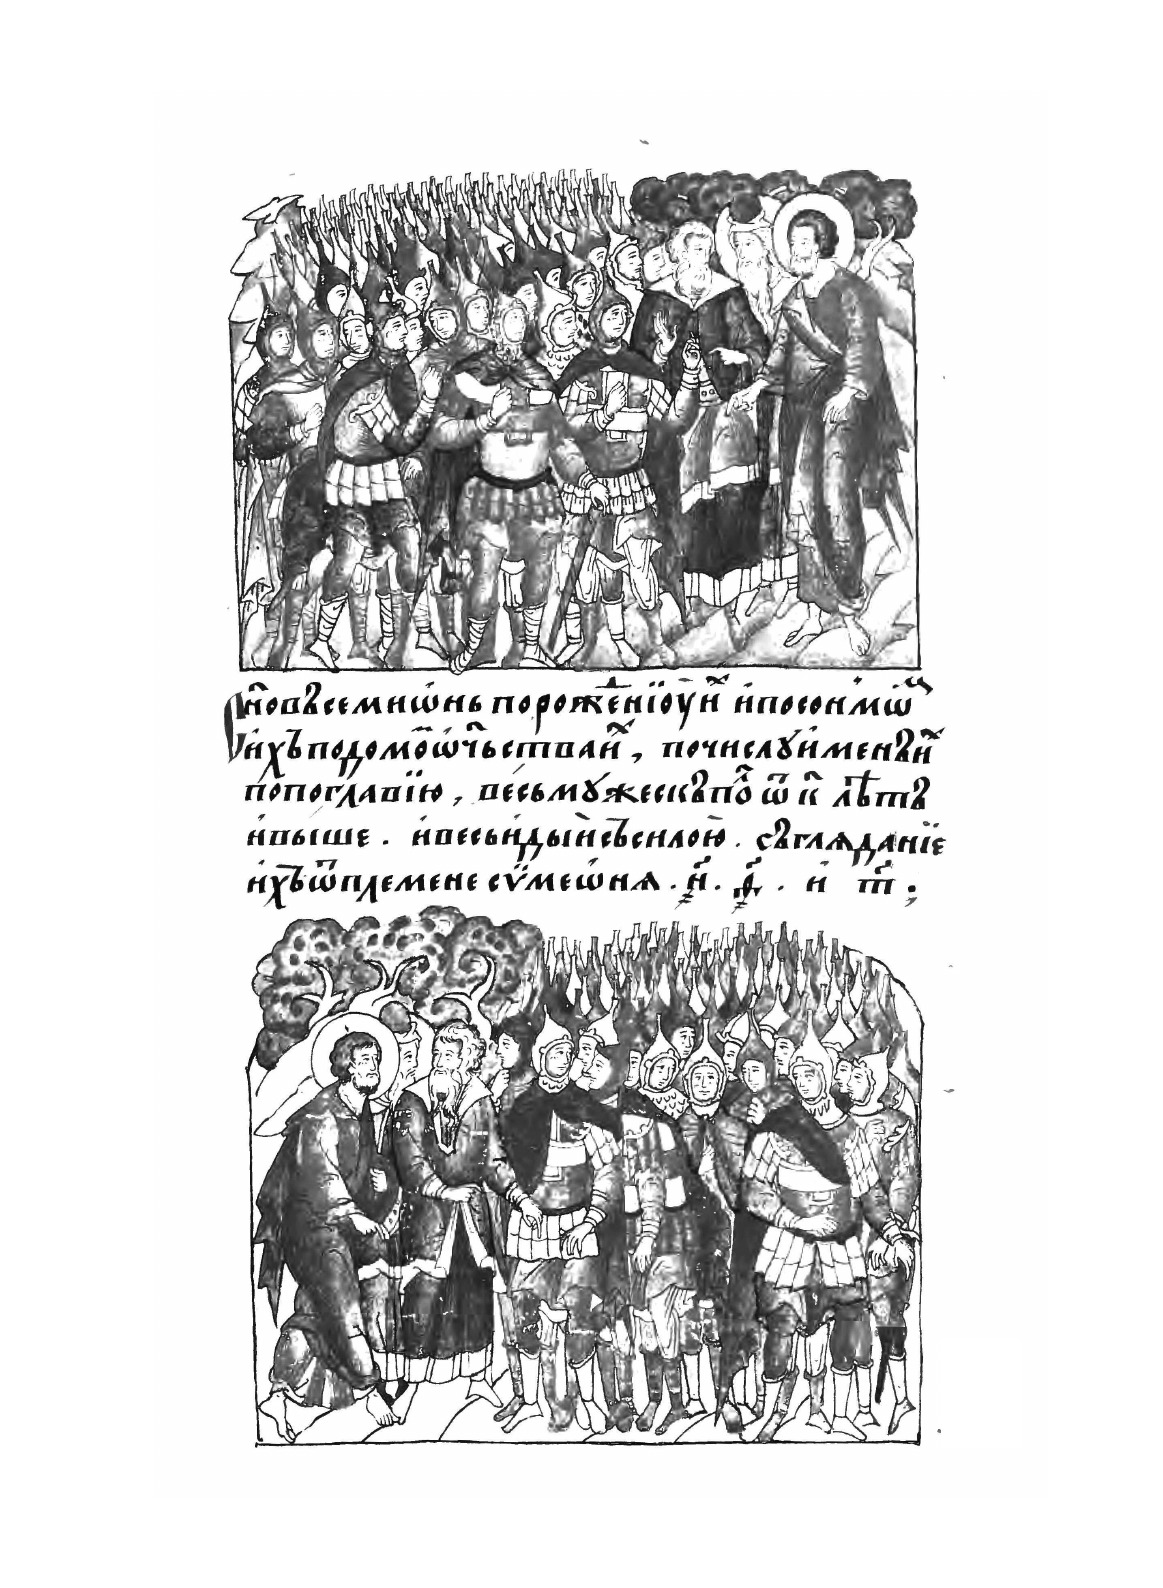 Сн҃овъ семиѡнь порожⷣенїю у҆ нⷯ и҆ по сонмѡⷨ
и҆хъ подомоⷨ ѿчⷭ҇ьства и҆ⷯ, почислу и҆менъ и҆ⷯ
попоглавїю, весь мужескъ поⷧ ѿ к҃ лѣтъ
и҆выше. и҆весь и҆дыи҆ съсилою. съглѧданїе
и҆хъ ѿ племене сѵмеѡ҆нѧ. ҂н҃. ҂ѳ҃. и҆ т҃;